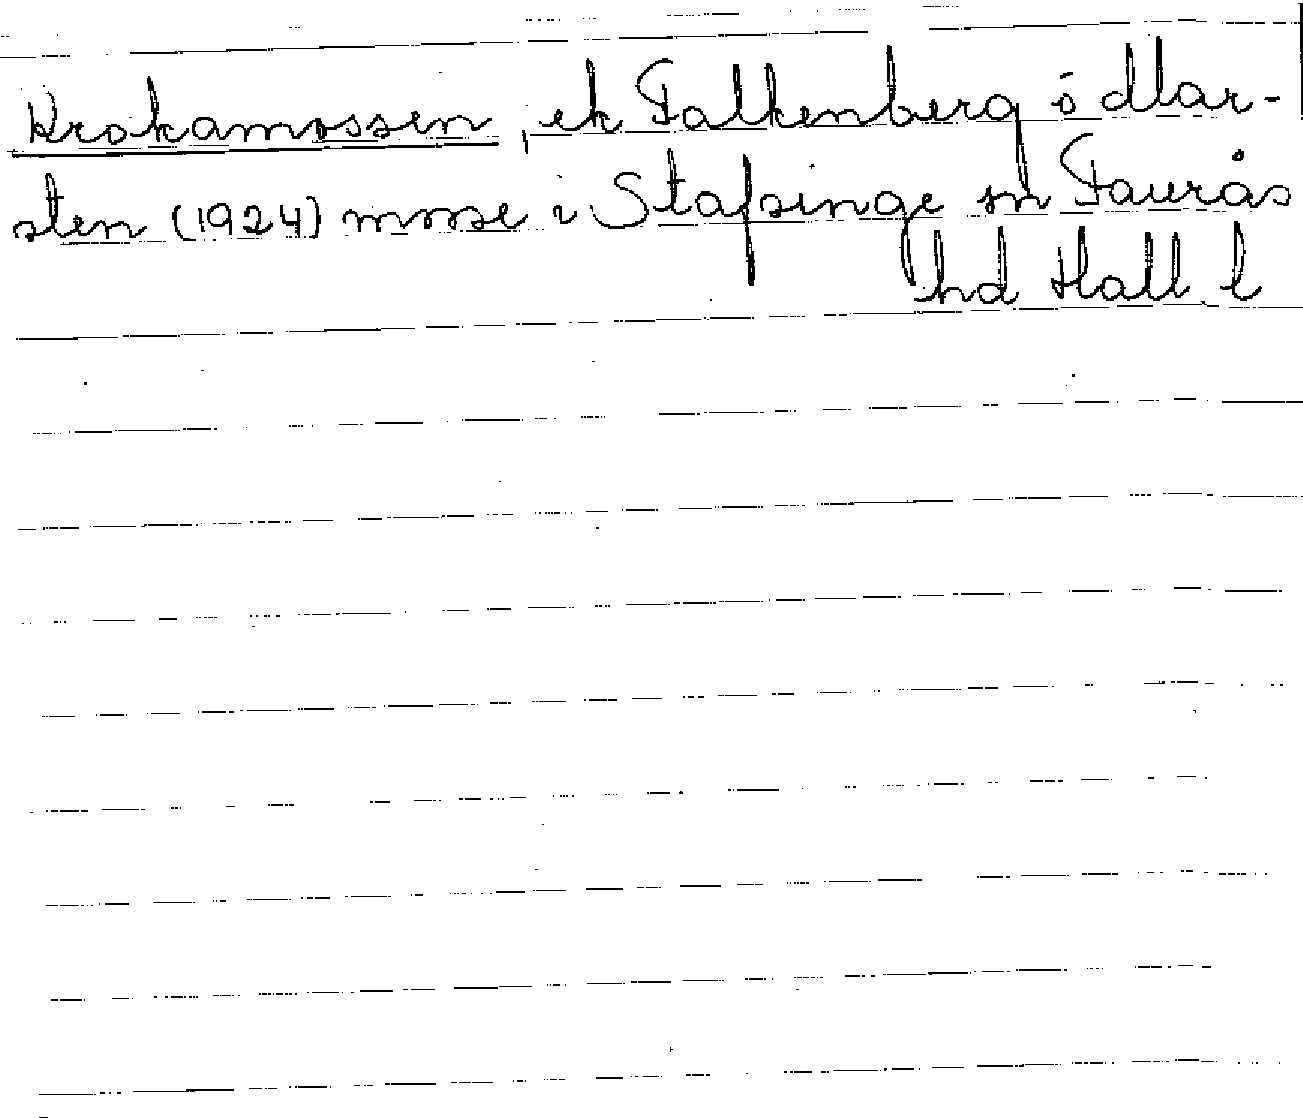 Krokamossen, ek Falkenberg ö Mar-
sten (1924) mosse i Stafsinge sn Faurås
hd Hall l